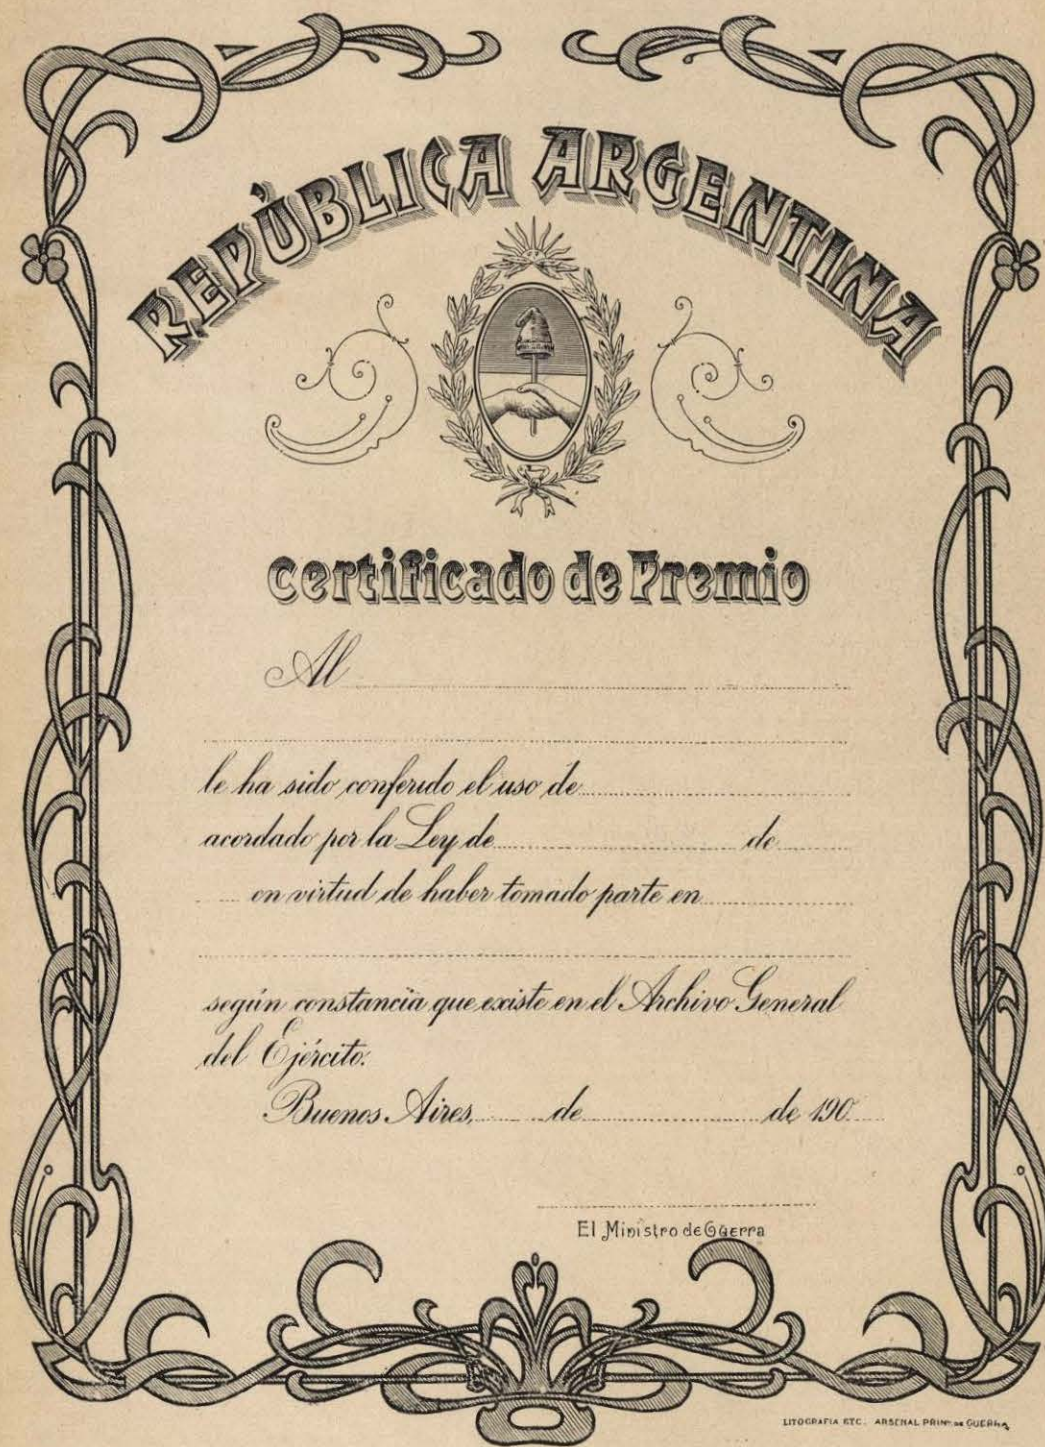 REPÚBLICA ARGENTINA
Certificado de Premio
Al
le ha sido conferido el uso de
acordado por la Ley de de
en virtud de haber tomado parte en
según constancia que existe en el Archivo General
del Ejército.
Buenos Aires, de de 190
El Ministro de Guerra
LITOGRAFIA ETC. ARSENAL PRINL. DE GUERRA